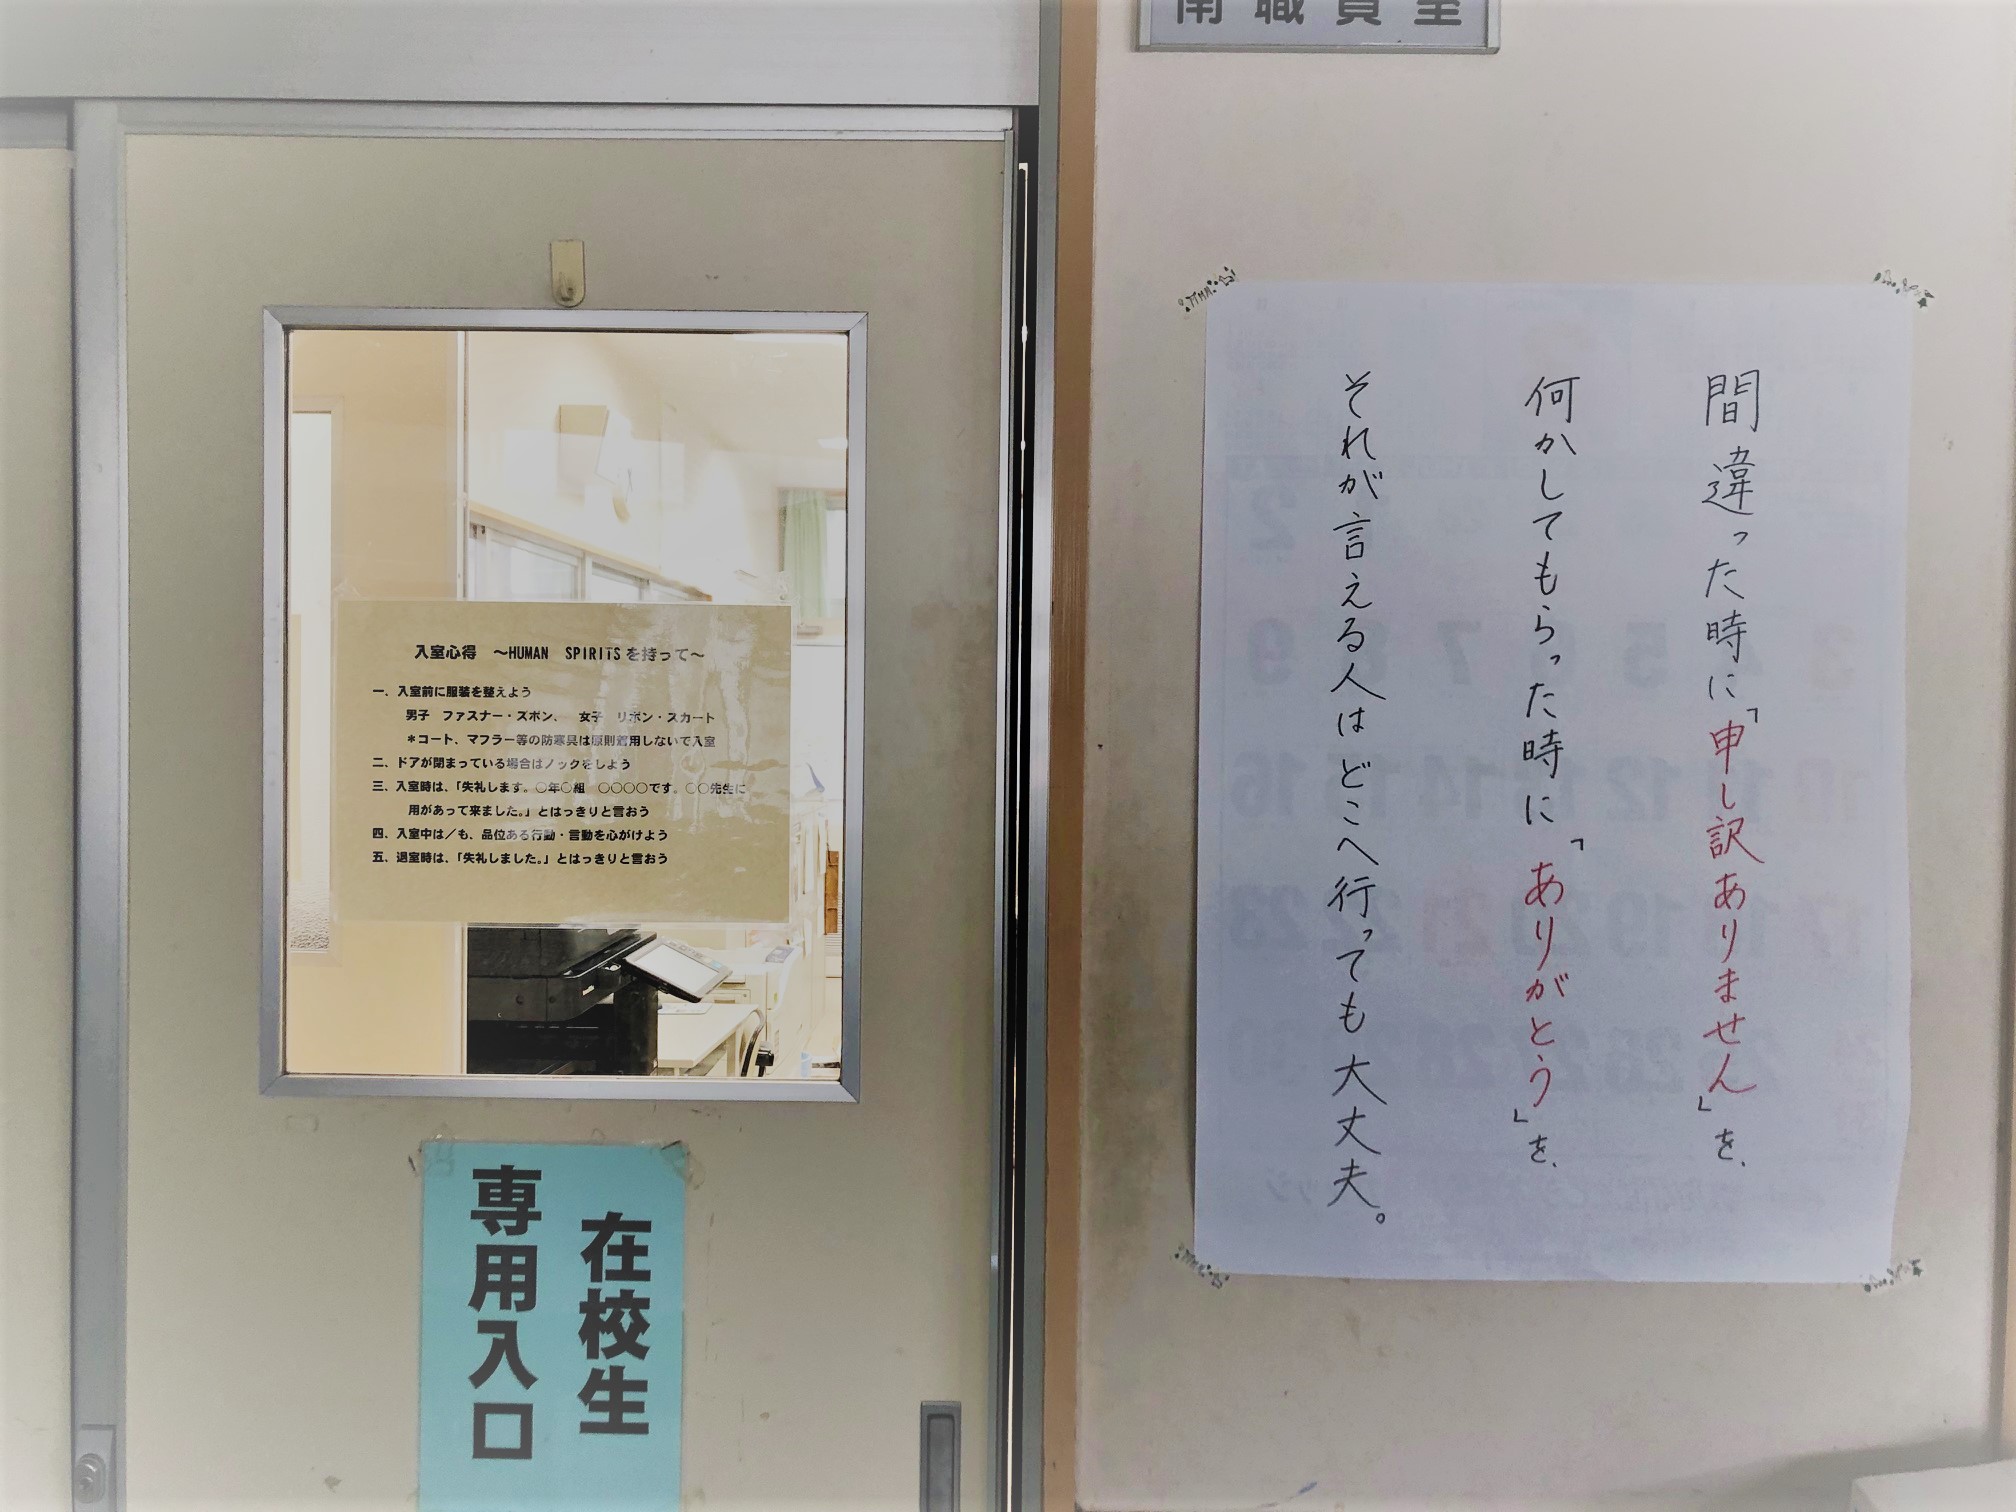 南職員室
入室心得 ～HUMAN SPIRITSを持って～
一、入室前に服装を整えよう
男子 ファスナー・ズボン、 女子 リボン・スカート
＊コート、マフラー等の防寒具は原則着用しないで入室
二、ドアが閉まっている場合はノックをしよう
三、入室時は、「失礼します。○年○組 ○○○○です。○○先生に
用があって来ました。」とはっきりと言おう
四、入室中は／も、品位ある行動・言動を心がけよう
五、退室時は、「失礼しました。」とはっきりと言おう
在校生
専用入口
間違った時に「申し訳ありません」を、
何かしてもらった時に「ありがとう」を、
それが言える人はどこへ行っても大丈夫。